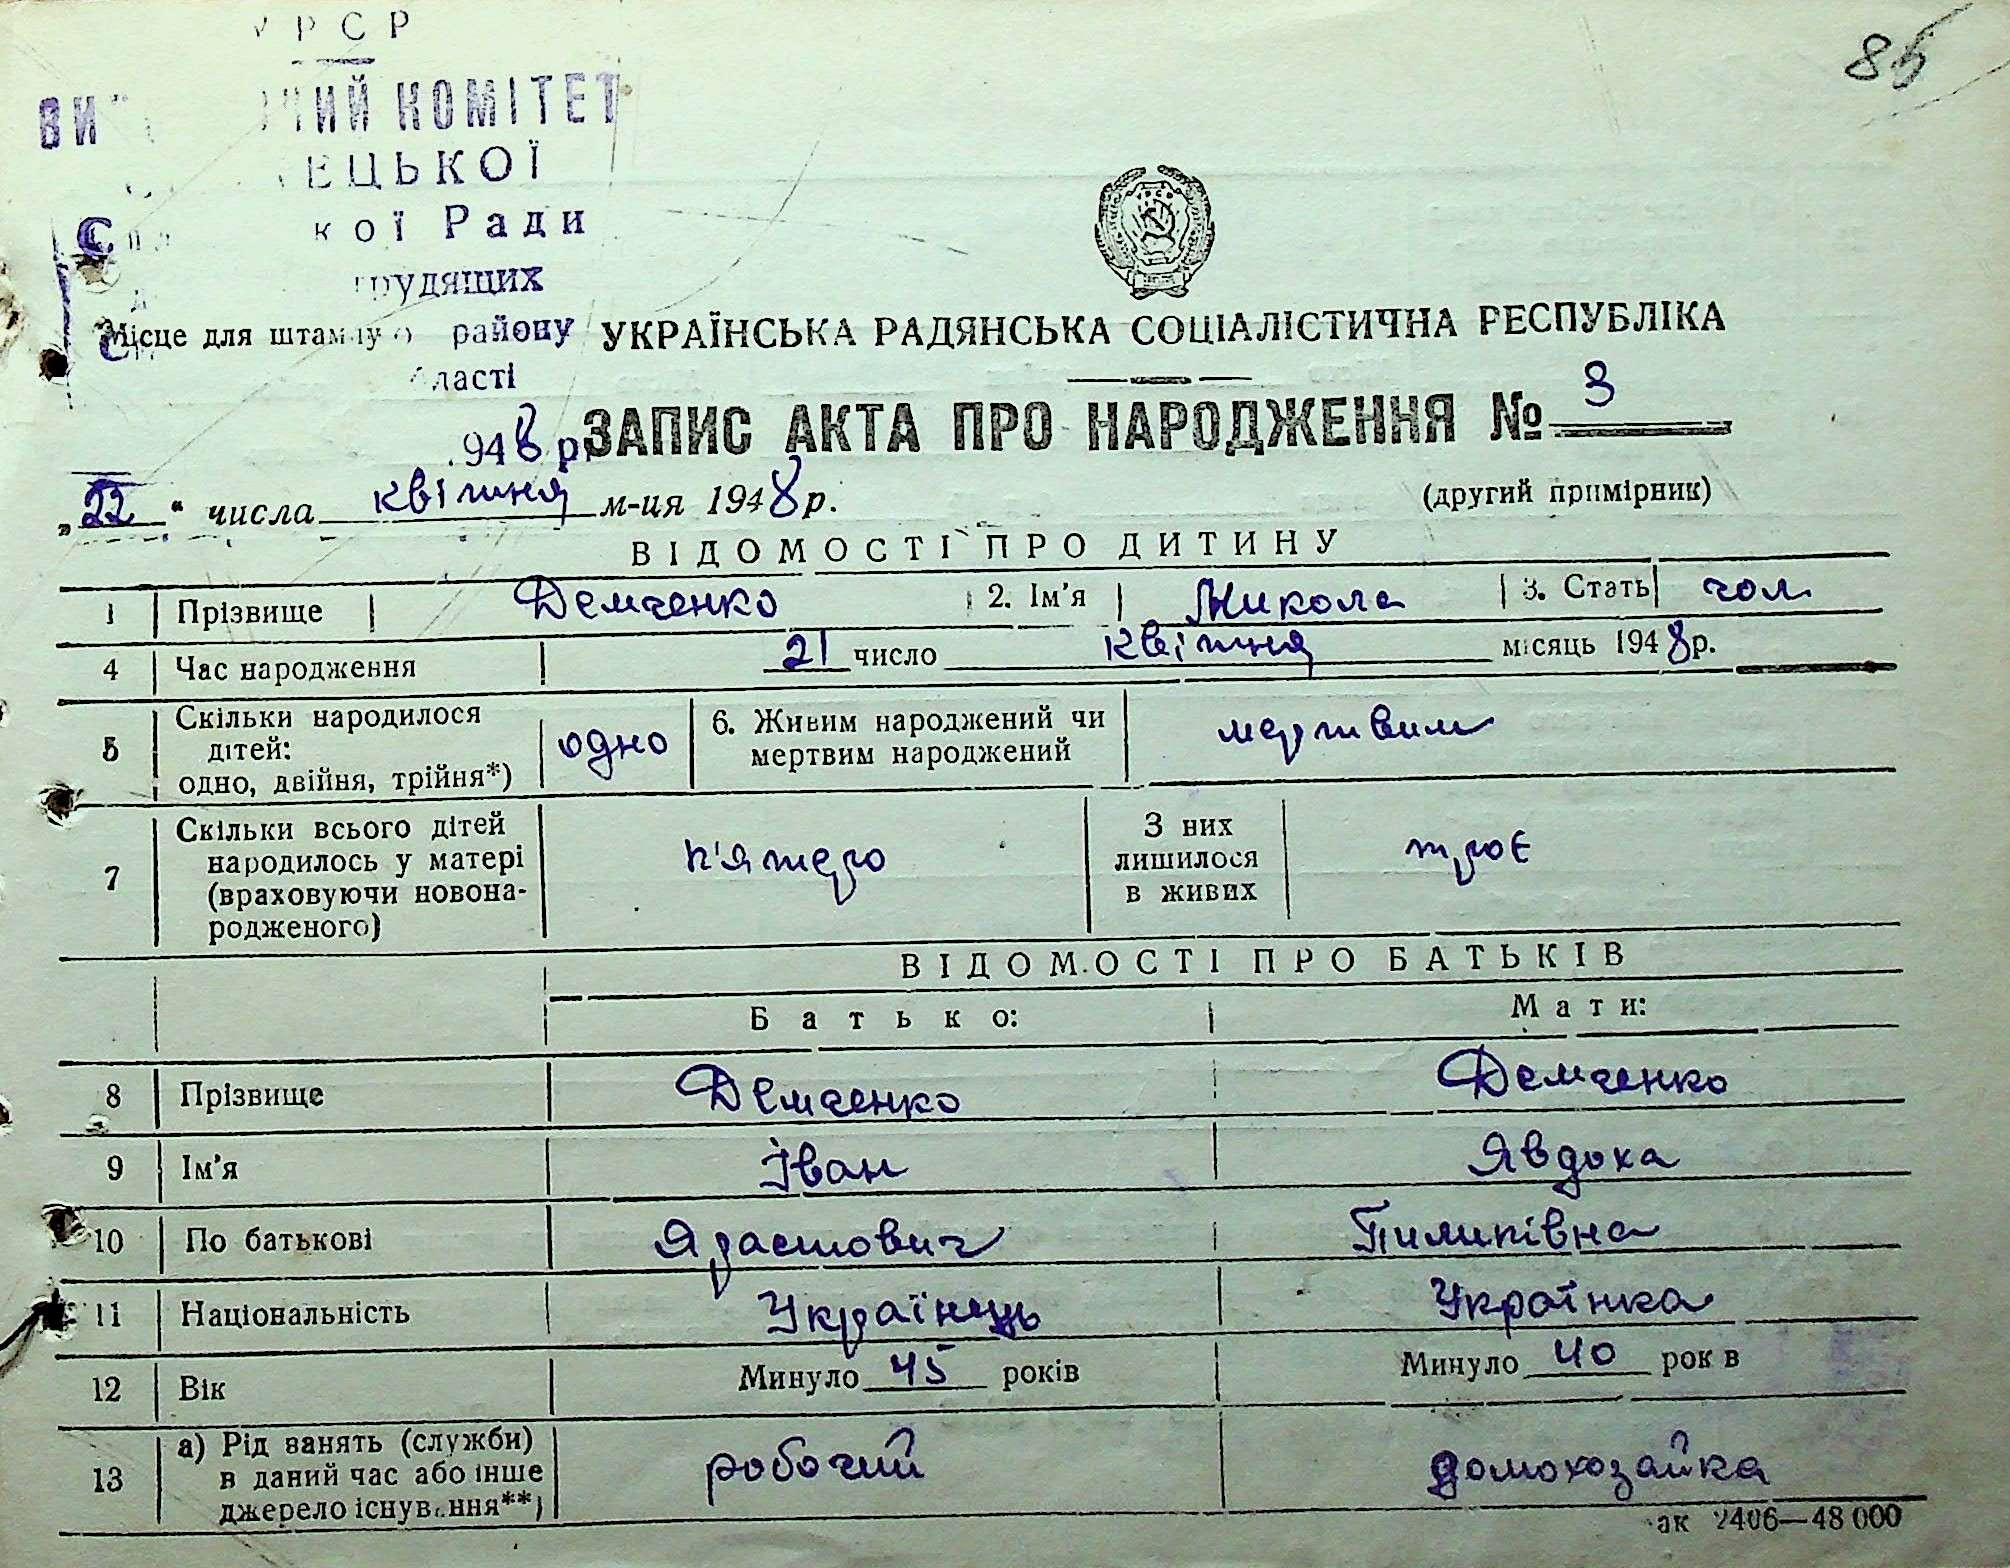 РСР
85
КОМІТЕТ
ЕЦЬКОЇ
кої Ради
трудящих
Місце для штампу району УКРАЇНСЬКА РАДЯНСЬКА СОЦІАЛІСТИЧНА РЕСПУБЛІКА
ласті
948 р. ЗАПИС АКТА ПРО НАРОДЖЕННЯ № 3
„22“ числа квітня м-ця 1948 р.
(другий примірник)
ВІДОМОСТІ ПРО ДИТИНУ
1 Прізвище Демченко 2. Ім'я Микола 3. Стать чол
4 Час народження 21 число квітня місяць 1948 р.
5 Скільки народилося дітей: одно, двійня, трійня*) одно 6. Живим народжений чи мертвим народжений мертвим
7 Скільки всього дітей народилось у матері (враховуючи новона-родженого) п'ятеро З них лишилося в живих троє
ВІДОМОСТІ ПРО БАТЬКІВ
Батько: Мати:
8 Прізвище Демченко Демченко
9 Ім'я Іван Явдоха
10 По батькові Пилипівна
11 Національність Українець Українка
12 Вік Минуло 45 років Минуло 40 рок в
13 а) Рід занять (служби) в даний час або інше джерело існування**) робочий домохозайка
ак 2406—48 000